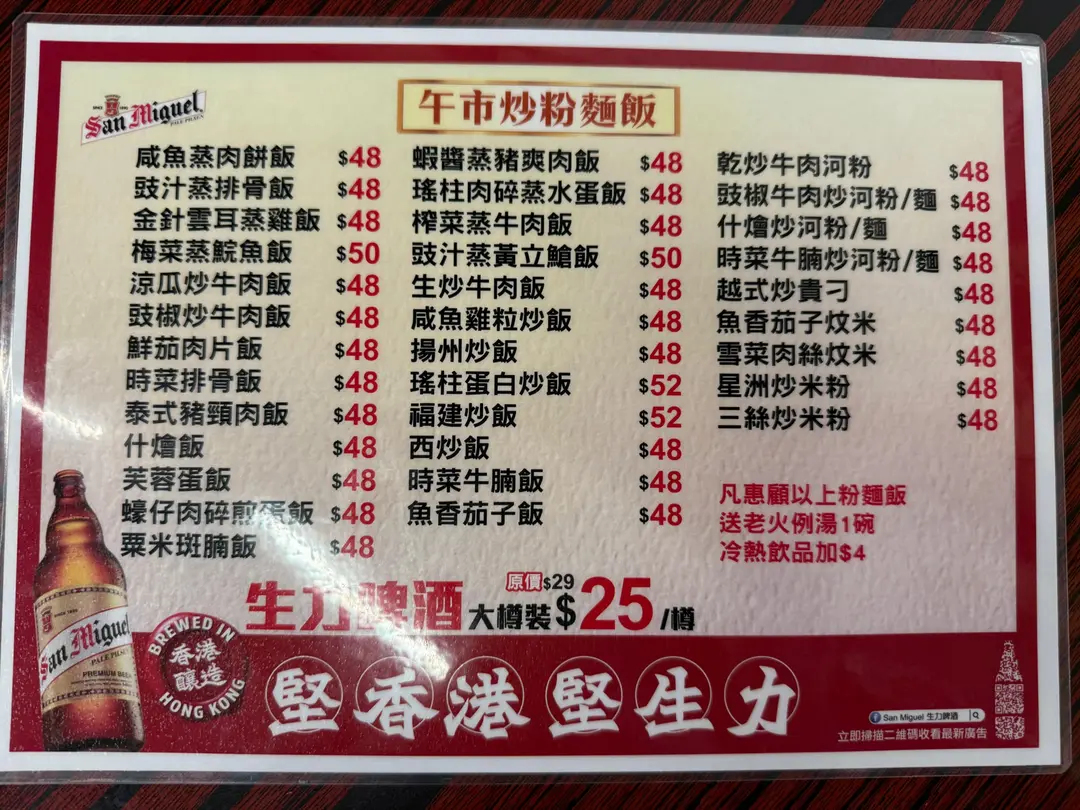 San Miguel
PALE PILSEN
午市炒粉麵飯
咸魚蒸肉餅飯 $48
豉汁蒸排骨飯 $48
金針雲耳蒸雞飯 $48
梅菜蒸鯇魚飯 $50
涼瓜炒牛肉飯 $48
豉椒炒牛肉飯 $48
鮮茄肉片飯 $48
時菜排骨飯 $48
泰式豬頸肉飯 $48
什燴飯 $48
芙蓉蛋飯 $48
蠔仔肉碎煎蛋飯 $48
粟米斑腩飯 $48
蝦醬蒸豬爽肉飯 $48
瑤柱肉碎蒸水蛋飯 $48
榨菜蒸牛肉飯 $48
豉汁蒸黃立鯧飯 $50
生炒牛肉飯 $48
咸魚雞粒炒飯 $48
揚州炒飯 $48
瑤柱蛋白炒飯 $52
福建炒飯 $52
西炒飯 $48
時菜牛腩飯 $48
魚香茄子飯 $48
乾炒牛肉河粉 $48
豉椒牛肉炒河粉/麵 $48
什燴炒河粉/麵 $48
時菜牛腩炒河粉/麵 $48
越式炒貴刁 $48
魚香茄子炆米 $48
雪菜肉絲炆米 $48
星洲炒米粉 $48
三絲炒米粉 $48
凡惠顧以上粉麵飯
送老火例湯1碗
冷熱飲品加$4
生力啤酒 大樽裝 原價$29 $25/樽
San Miguel
PALE PILSEN
PREMIUM BEER
BREWED IN
香港
釀造
HONG KONG
堅香港 堅生力
San Miguel 生力啤酒
立即掃描二維碼收看最新廣告